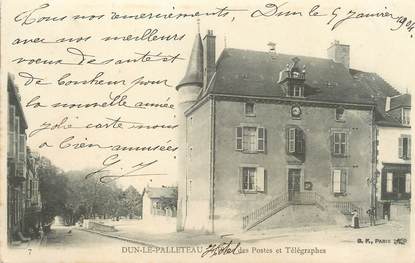 Tous nos remerciements, Dun le 9 Janvier 1904
avec nos meilleurs
vœux de santé et
de bonheur pour
la nouvelle année
jolie carte nous
a bien amusées
G. J.
7
DUN-LE-PALLETEAU Hôtel des Postes et Télégraphes
B. F., PARIS